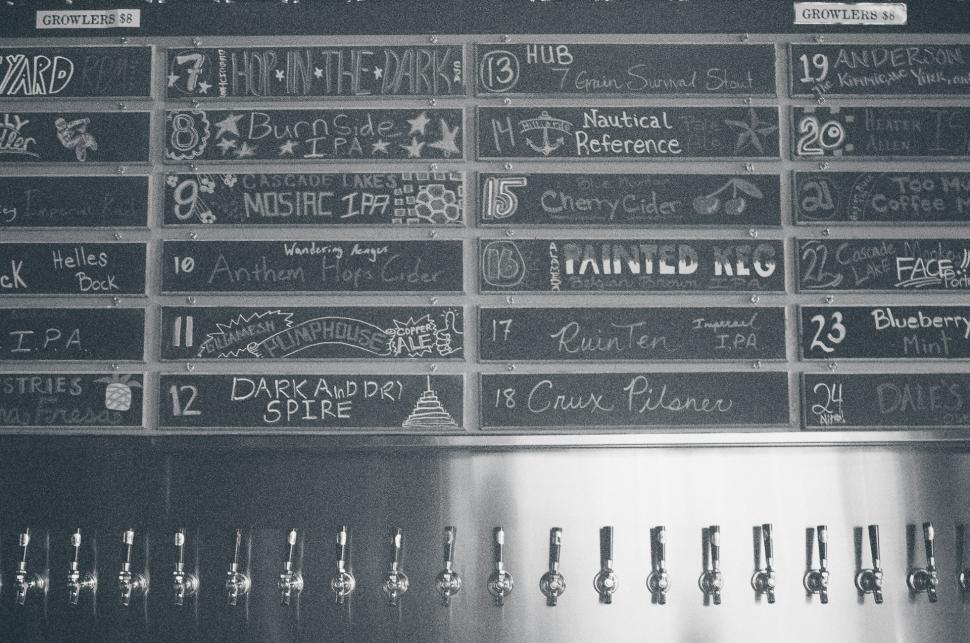 GROWLERS $8
GROWLERS $8
YARD
Helles
Bock
I.P.A.
7 HOP IN THE DARK
8 Burnside
IPA
CASCADE LAKES
9 MOSIAC IPA
Wandering Aengus
10 Anthem Hops Cider
11 GILGAMESH PLIMPHOUSE COPPER
ALE
12 DARK AInD DRY
SPIRE
HUB
13 7 Grain Survival Stout
14 Nautical
Reference
Ale
15 Cherry Cider
16 ALAMEDA PAINTED KEG
Belgian Brown IPA
17 RuinTen Imperial
IPA
18 Crux Pilsner
19 ANDERSON
The Kimmie, the Yink, and
20 HEATER
ALLEN
21 TOO MO
Coffee M
22 Cascade
Lake FACE
Porte
23 Blueberry
Mint
24 DALE'S
Nitro!